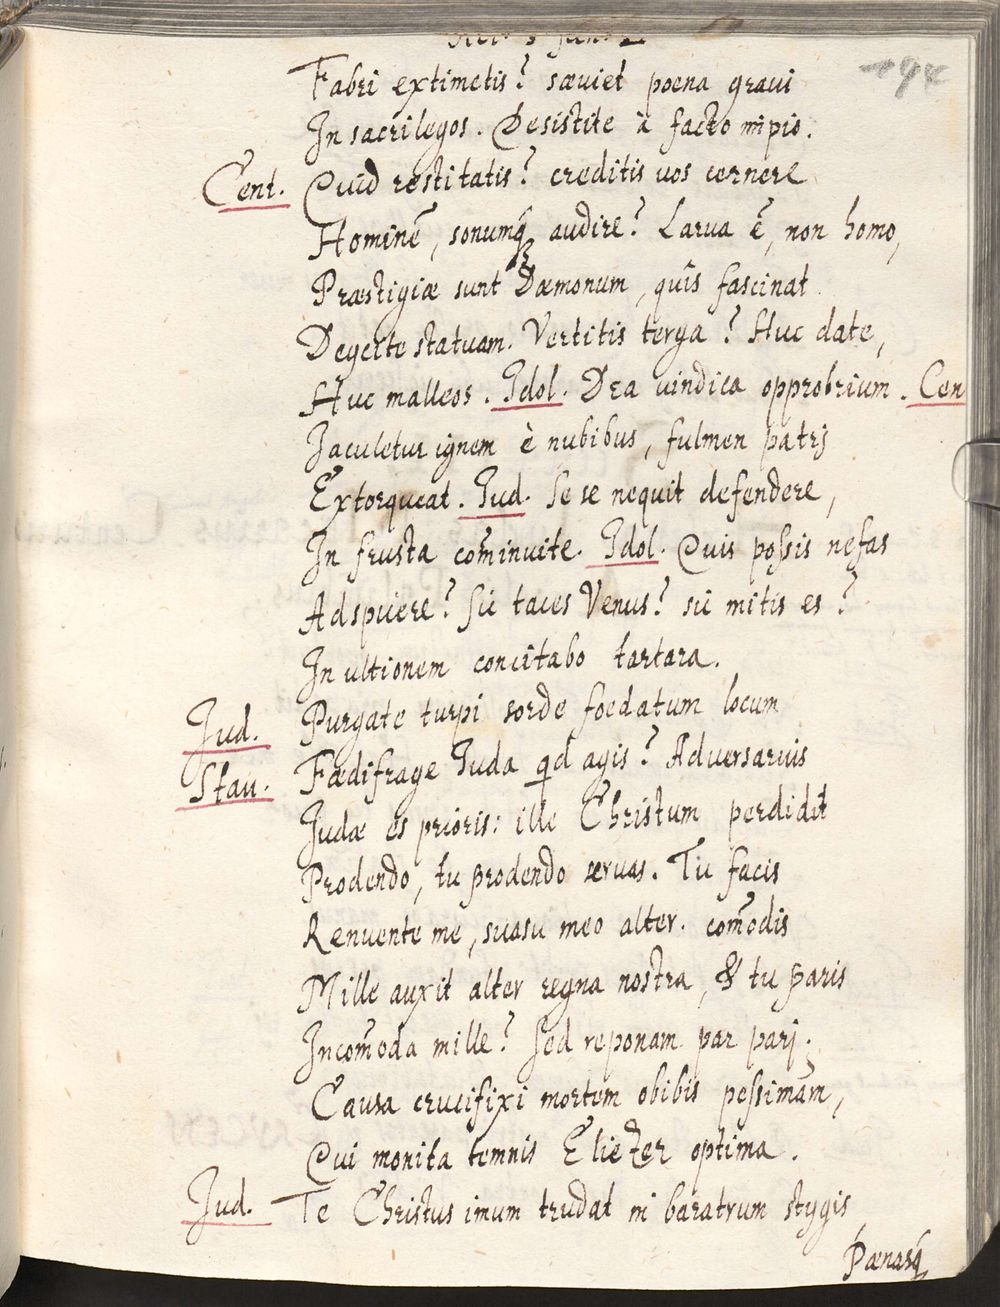 Fabri extimetis? sæviet poena gravi
In sacrilegos. Desistite à facto impio.
Cent. Quid restitatis? creditis vos cernere
Hominē, sonumq́ audire? Larva ē, non homo,
Præstigiæ sunt Dæmonum, quîs fascinat
Deijcite statuam. Vertitis terga? Huc date,
Huc malleos. Idol. Dea vindica opprobrium. Cen
Jaculetur ignem è nubibus, fulmen patrj
Extorqueat. Jud. Se se nequit defendere,
In frusta com̄inuite. Idol. Quis possis nefas
Adspicere? Sic taces Venus? sic mitis es?
In ultionem concitabo tartara.
Jud. Purgate turpi sorde foedatum locum
Stau. Fœdifrage Juda qd agis? Adversarius
Judæ es prioris: ille Christum perdidit
Prodendo, tu prodendo servas. Tu facis
Renuente me, suasu meo alter. com̄odis
Mille auxit alter regna nostra, & tu paris
Incom̄oda mille? Sed reponam par parj.
Causa crucifixi mortem obibis pessimam,
Qui monita temnis Eliezer optima.
Jud. Te Christus imum trudat in baratrum stygis
Pœnasq́